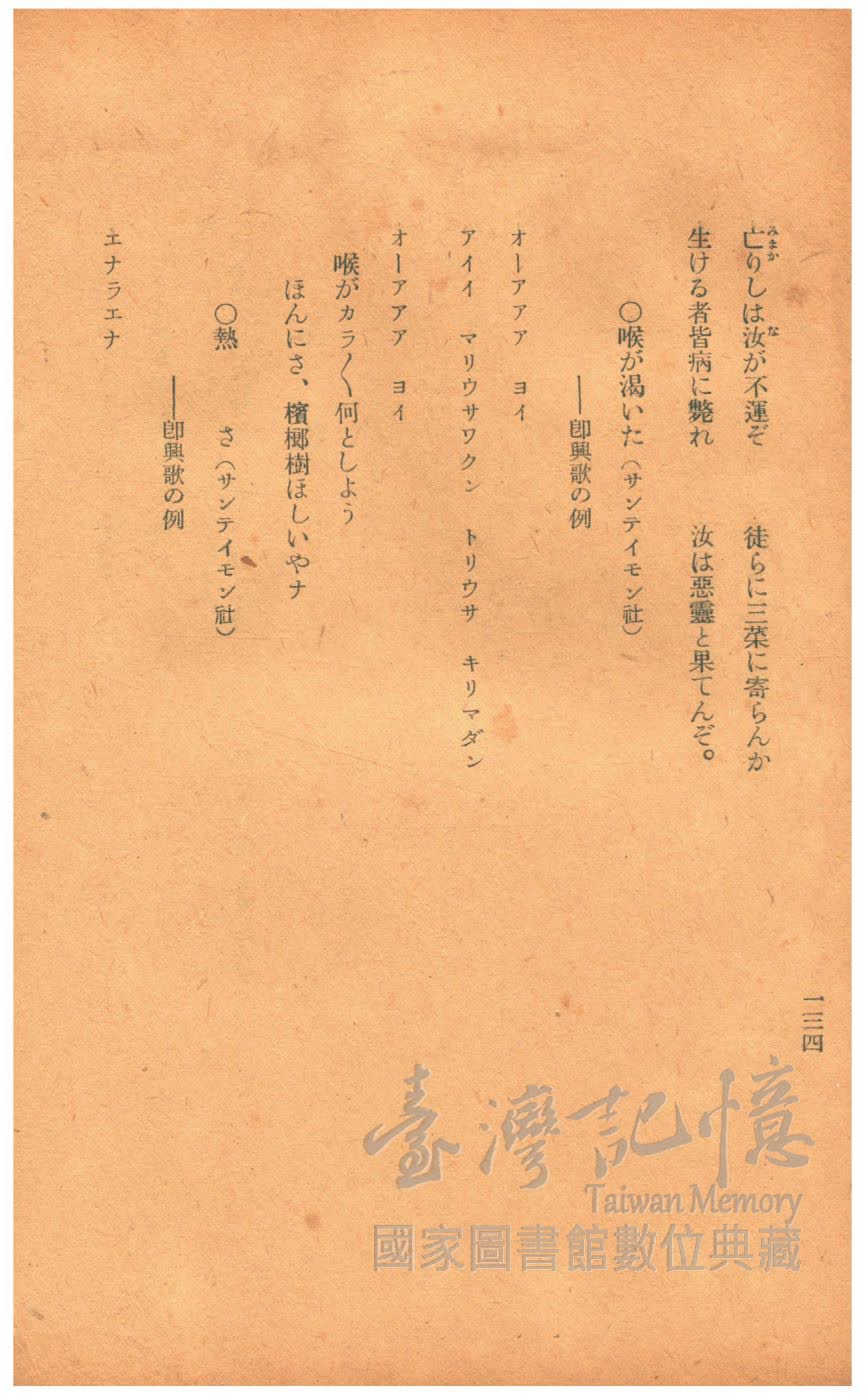 亡りしは汝が不運ぞ　徒らに三菜に寄らんか
みまか　な
生ける者皆病に斃れ　汝は惡靈と果てんぞ。
〇喉が渴いた（サンテイモン社）
――卽興歌の例
オーアアア　ヨイ
アイイ　マリウサワクン　トリウサ　キリマダン
オーアアア　ヨイ
喉がカラ〳〵何としよう
ほんにさ、檳榔樹ほしいやナ
〇熱　さ（サンテイモン社）
――卽興歌の例
エナラエナ
一三四
臺灣記憶
Taiwan Memory
國家圖書館數位典藏